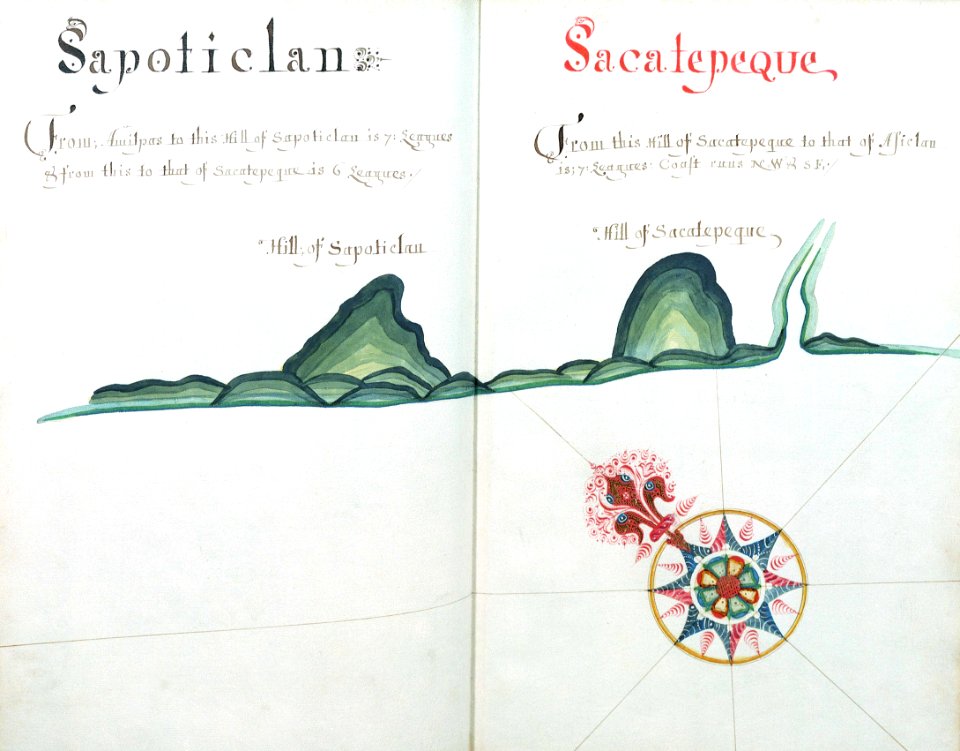 Sapoticlan
From; Amilpas to this Hill of Sapoticlan is 7: Leagues
& from this to that of Sacatepeque is 6 Leagues./
Hill; of Sapoticlan
Sacatepeque
From this Hill of Sacatepeque to that of Asiclan
is; 7: Leagues: Coast runs NW & SE:/
Hill of Sacatepeque